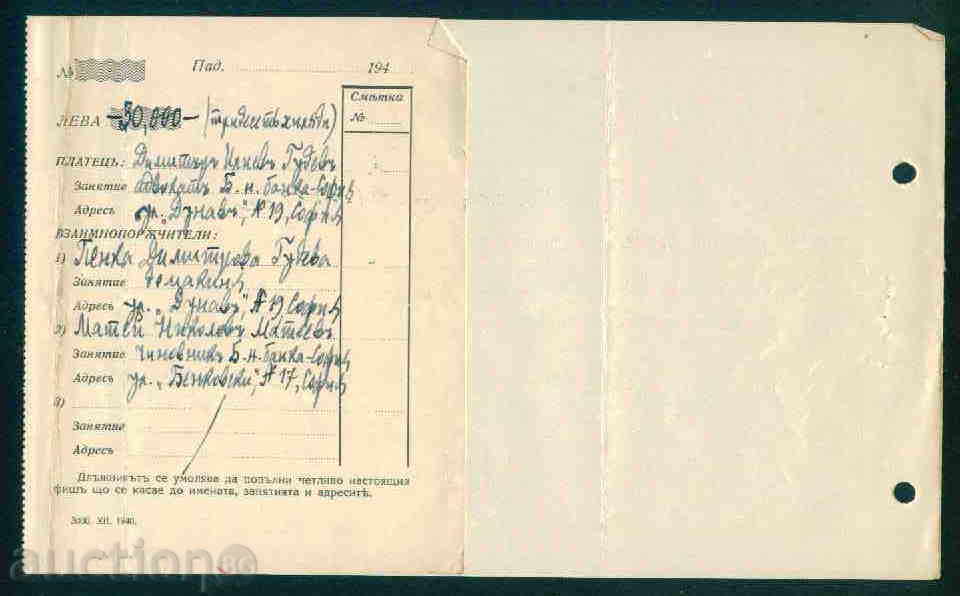 № Пад. 194
Смѣтка
ЛЕВА -30,000- /тридесетъ хиляди/ №
ПЛАТЕЦЪ: Димитъръ Илиевъ Гудевъ
Занятие адвокатъ Б. н. банка-София
Адресъ ул. „Дунавъ", № 19, София
ВЗАИМНОПОРѪЧИТЕЛИ:
1) Пенка Димитрова Гудева
Занятие домакиня
Адресъ ул. „Дунавъ", № 19 София
2) Матей Николовъ Матеевъ
Занятие чиновникъ Б. н. банка-София
Адресъ ул. „Бенковски", № 17, София
3)
Занятие
Адресъ
Длъжникътъ се умолява да попълни четливо настоящия
фишъ що се касае до имената, занятията и адреситѣ.
XII. 1940.
auction bg